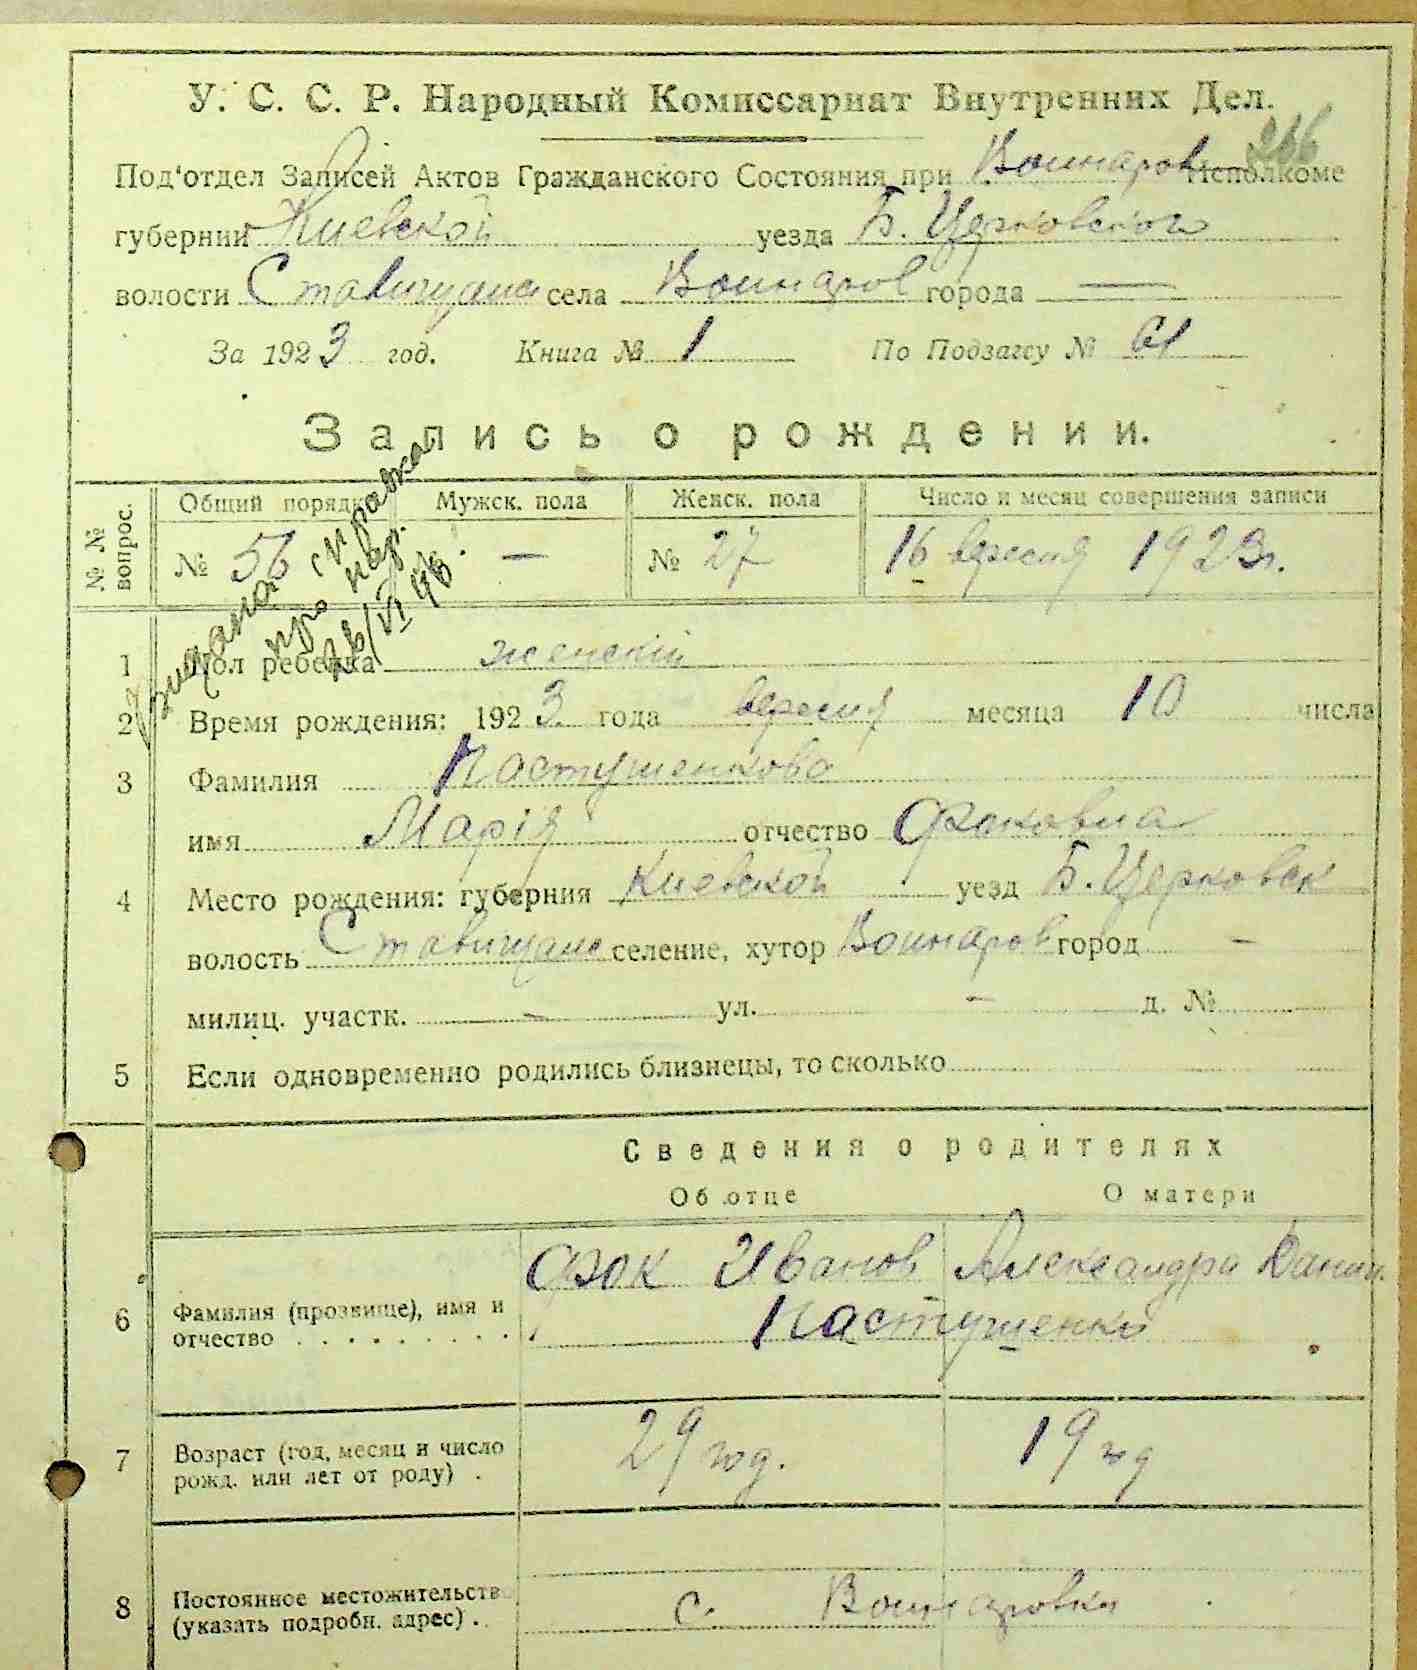 У. С. С. Р. Народный Комиссариат Внутренних Дел.
266
Под'отдел Записей Актов Гражданского Состояния при Воинаров Исполкоме
губернии Киевской уезда Б. Церковского
волости Ставищанс села Воинаров города —
За 1923 год. Книга № 1 По Подзагсу № 61
Запись о рождении.
№ № вопрос. Общий порядк Мужск. пола Женск. пола Число и месяц совершения записи
№ 56 — № 27 16 вересня 1923 г.
видана справка
про нар.
26/VI 46.
1 Пол ребенка женскій
2 Время рождения: 1923 года вересня месяца 10 числа
3 Фамилия Пастушенкова
имя Марія отчество Фоковна
4 Место рождения: губерния Киевской уезд Б. Церковск
волость Ставищанс селение, хутор Воинаров город -
милиц. участк. - ул. - д. №
5 Если одновременно родились близнецы, то сколько
Сведения о родителях
Об отце О матери
6 Фамилия (прозвище), имя и отчество Фок Иванов Александра Данил.
Пастушенко
7 Возраст (год, месяц и число рожд. или лет от роду) . 29 год. 19 год
8 Постоянное местожительств (указать подробн. адрес) . с. Воинаровка